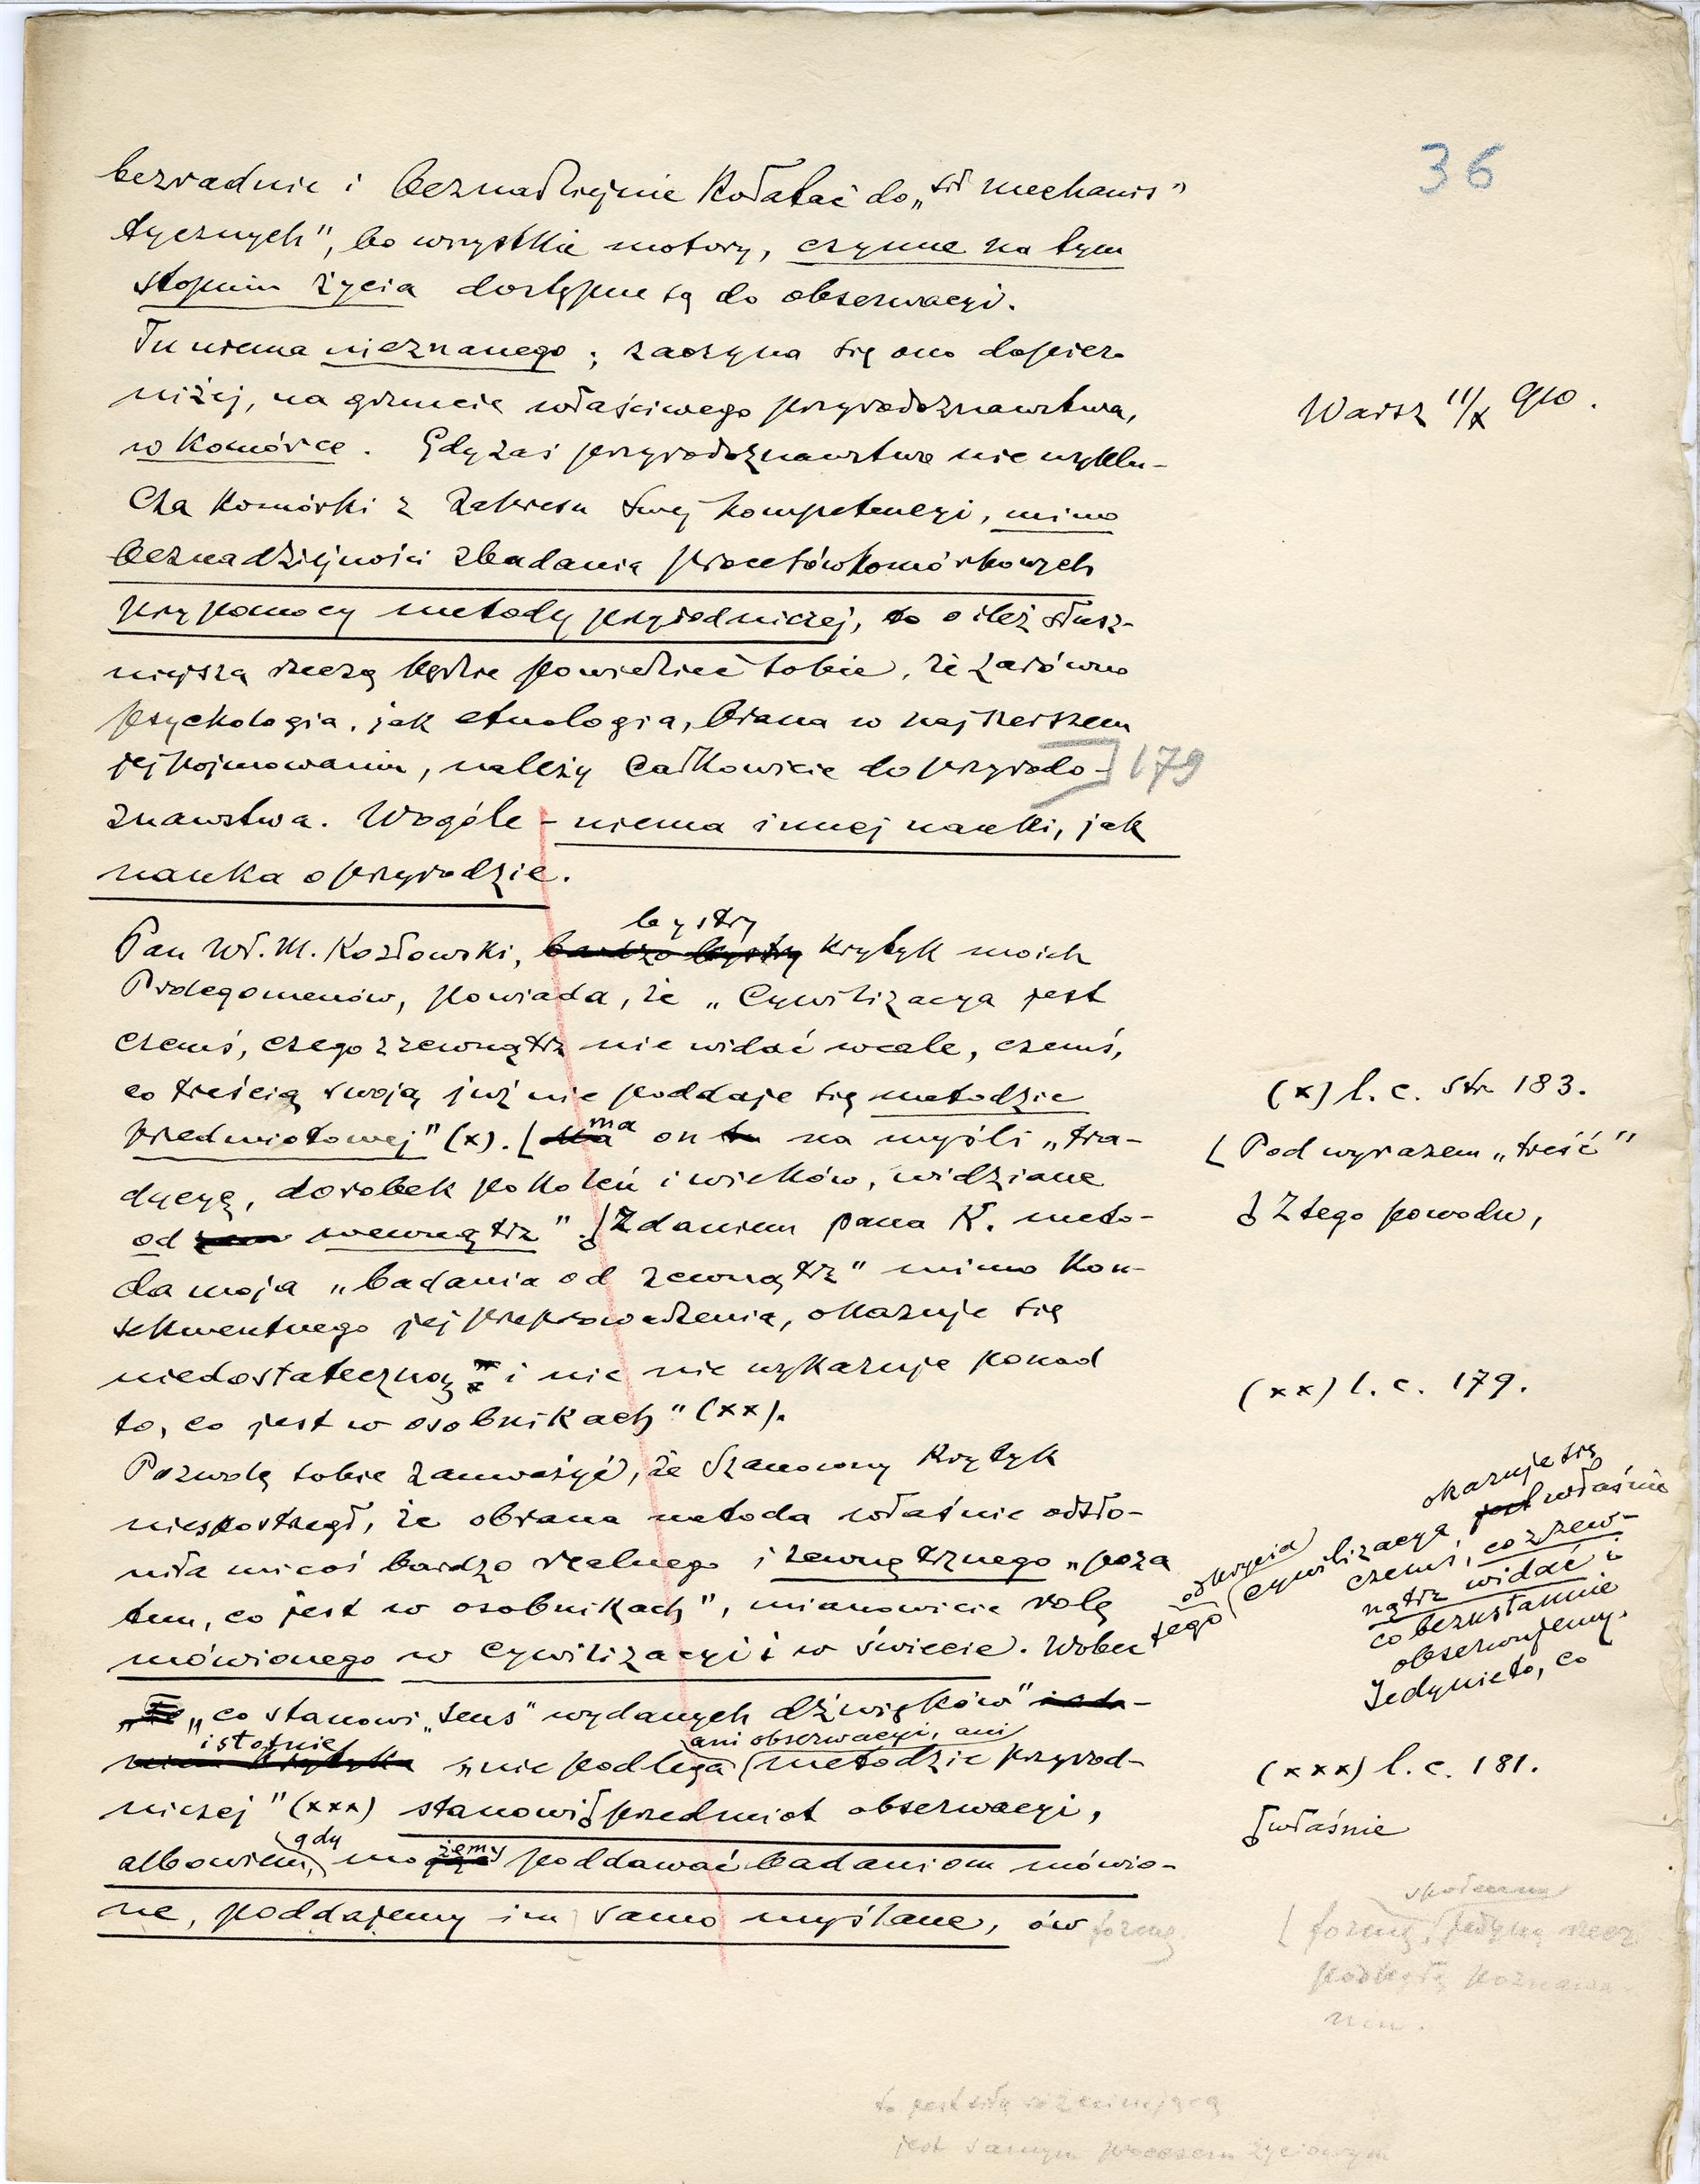 36
bezradnie i beznadziejnie kołatać do „sił mechanis"
tycznych", bo wszystkie motory, czynne na tym
stopniu życia dostępne są do obserwacyi.
Tu niema nieznanego; zaczyna się ono dopiero
niżej, na gruncie właściwego przyrodoznawstwa,
w komórce. Gdy zaś przyrodoznawstwo nie wyklu-
cza komórki z zakresu swej kompetencyi, mimo
beznadziejności zbadania procesów komórkowych
przy pomocy metody przyrodniczej, to o ileż słusz-
niejszą rzeczą będzie powiedzieć sobie, że zarówno
psychologia, jak etnologia, brana w najszerszem
jej pojmowaniu, należy całkowicie do przyrodo-
179
znawstwa. Wogóle – niema innej nauki, jak
nauka o przyrodzie.
Warsz 11/X 910.
bystry
Pan Wł. M. Kozłowski, bardzo bystry krytyk moich
Prolegomenów, powiada, że „Cywilizacya jest
czemś, czego z zewnątrz nie widać wcale, czemś,
co treścią swoją już nie poddaje się metodzie
przedmiotowej" (x). [ ma on na myśli „tra-
dycyę, dorobek pokoleń i wieków, widziane
od wewnątrz". Zdaniem pana K. meto-
da moja „badania od zewnątrz" mimo kon-
sekwentnego jej przeprowadzenia, okazuje się
niedostateczną i nic nie wykazuje ponad
to, co jest w osobnikach" (xx).
(x) l. c. str 183.
[ Pod wyrazem „treść"
Z tego powodu,
(xx) l. c. 179.
Pozwolę sobie zauważyć, że Szanowny Krytyk
niespostrzegł, że obrana metoda właśnie odsło-
niła mi coś bardzo realnego i zewnętrznego „poza
tem, co jest w osobnikach", mianowicie rolę
mówionego w Cywilizacyi i w świecie. Wobec
tego odkrycia cywilizacya
okazuje się
jest właśnie
czemś, co z zew-
nątrz widać i
co bezustannie
obserwujemy.
Jedynie to, co
„co stanowi „sens" wydanych dźwięków"
istotnie
ani obserwacyi, ani
„nie podlega metodzie przyrod-
niczej" (xxx) stanowi przedmiot obserwacyi,
gdy
żemy
albowiem, mo poddawać badaniom mówio-
ne, poddajemy im samo myślane, ów formę
(xxx) l. c. 181.
właśnie
społeczną
[ formę, jedyną rzecz
podległą poznawa-
niu.
jest samym procesem życiowym